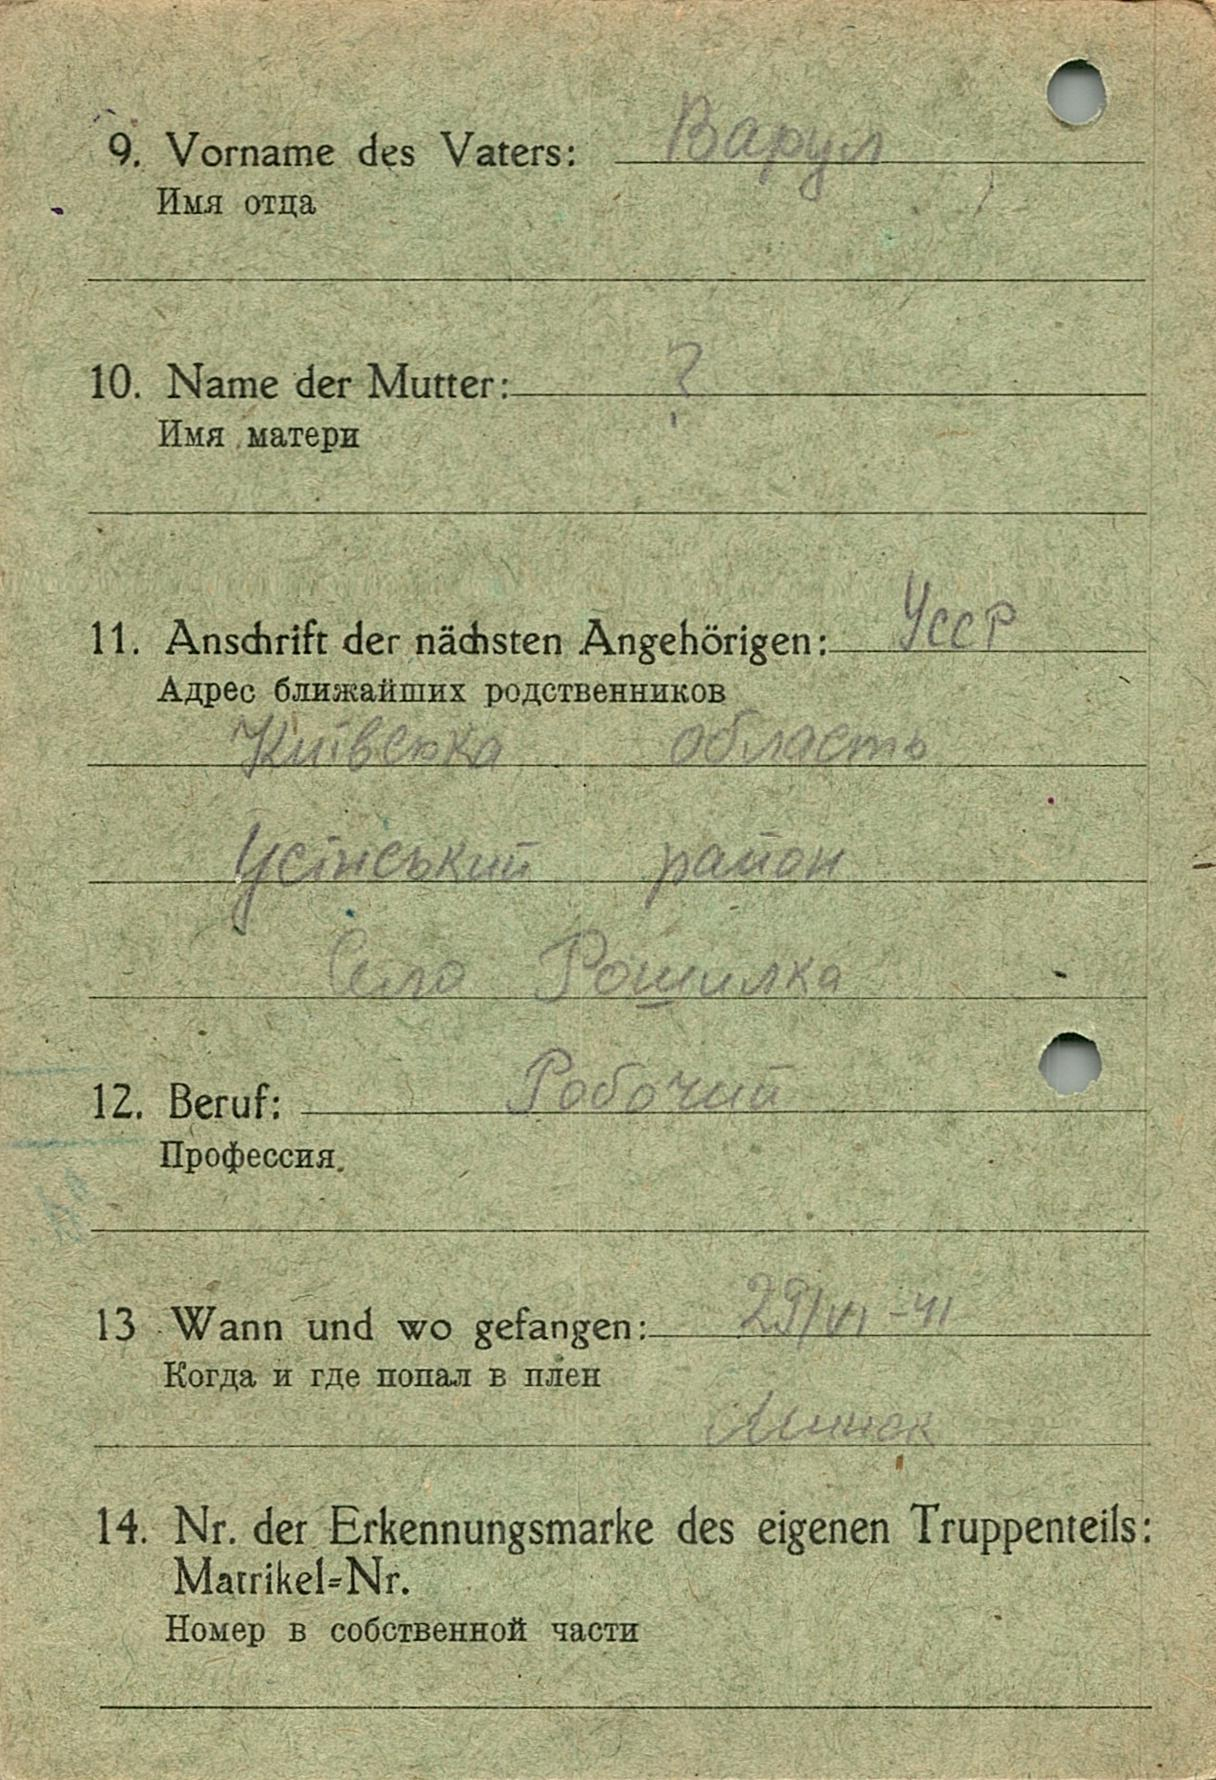 9. Vorname des Vaters: Варул
Имя отца
10. Name der Mutter: ?
Имя матери
11. Anschrift der nächsten Angehörigen: УССР
Адрес ближайших родственников
Київська область
Усінський район
Село Рошилка
12. Beruf: Робочий
Профессия.
13 Wann und wo gefangen: 29/VI-41
Когда и где попал в плен
Минск
14. Nr. der Erkennungsmarke des eigenen Truppenteils:
Matrikel=Nr.
Номер в собственной части